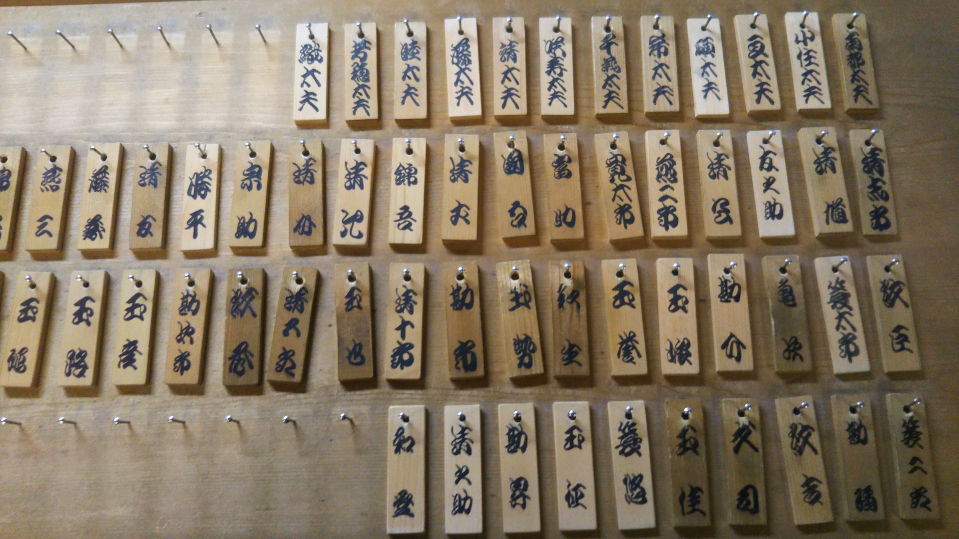 南都太夫
小住太夫
亘太夫
碩太夫
希太夫
千歳太夫
咲寿太夫
靖太夫
藤太夫
睦太夫
芳穂太夫
太夫
清志郎
清馗
友之助
清公
燕二郎
寛太郎
團吾
清丈
錦吾
清允
清
宗助
勝平
清友
藤蔵
燕三
紋臣
簑太郎
亀次
勘介
玉
玉誉
玉勢
勘市
清十郎
玉也
清五郎
紋秀
勘次郎
玉彦
玉路
玉延
簑二郎
勘
紋
文司
玉佳
簑悠
玉征
勘昇
清之助
和登